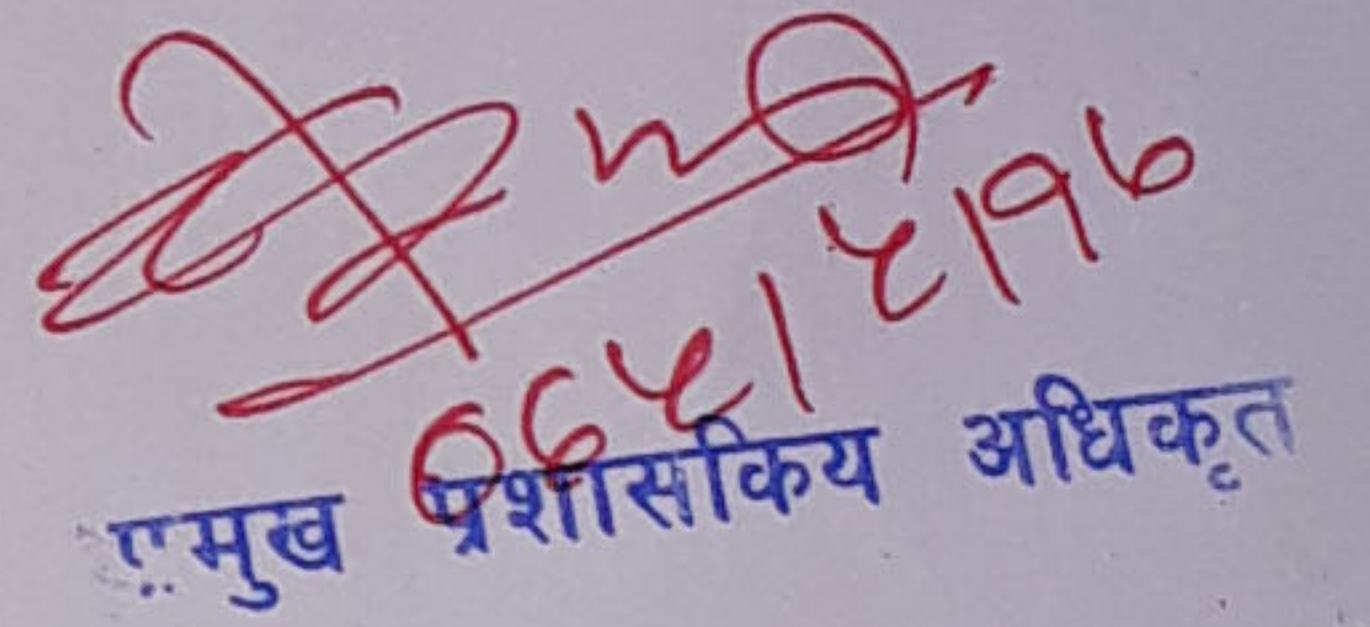 ०७५।५।१७
प्रमुख प्रशासकिय अधिकृत